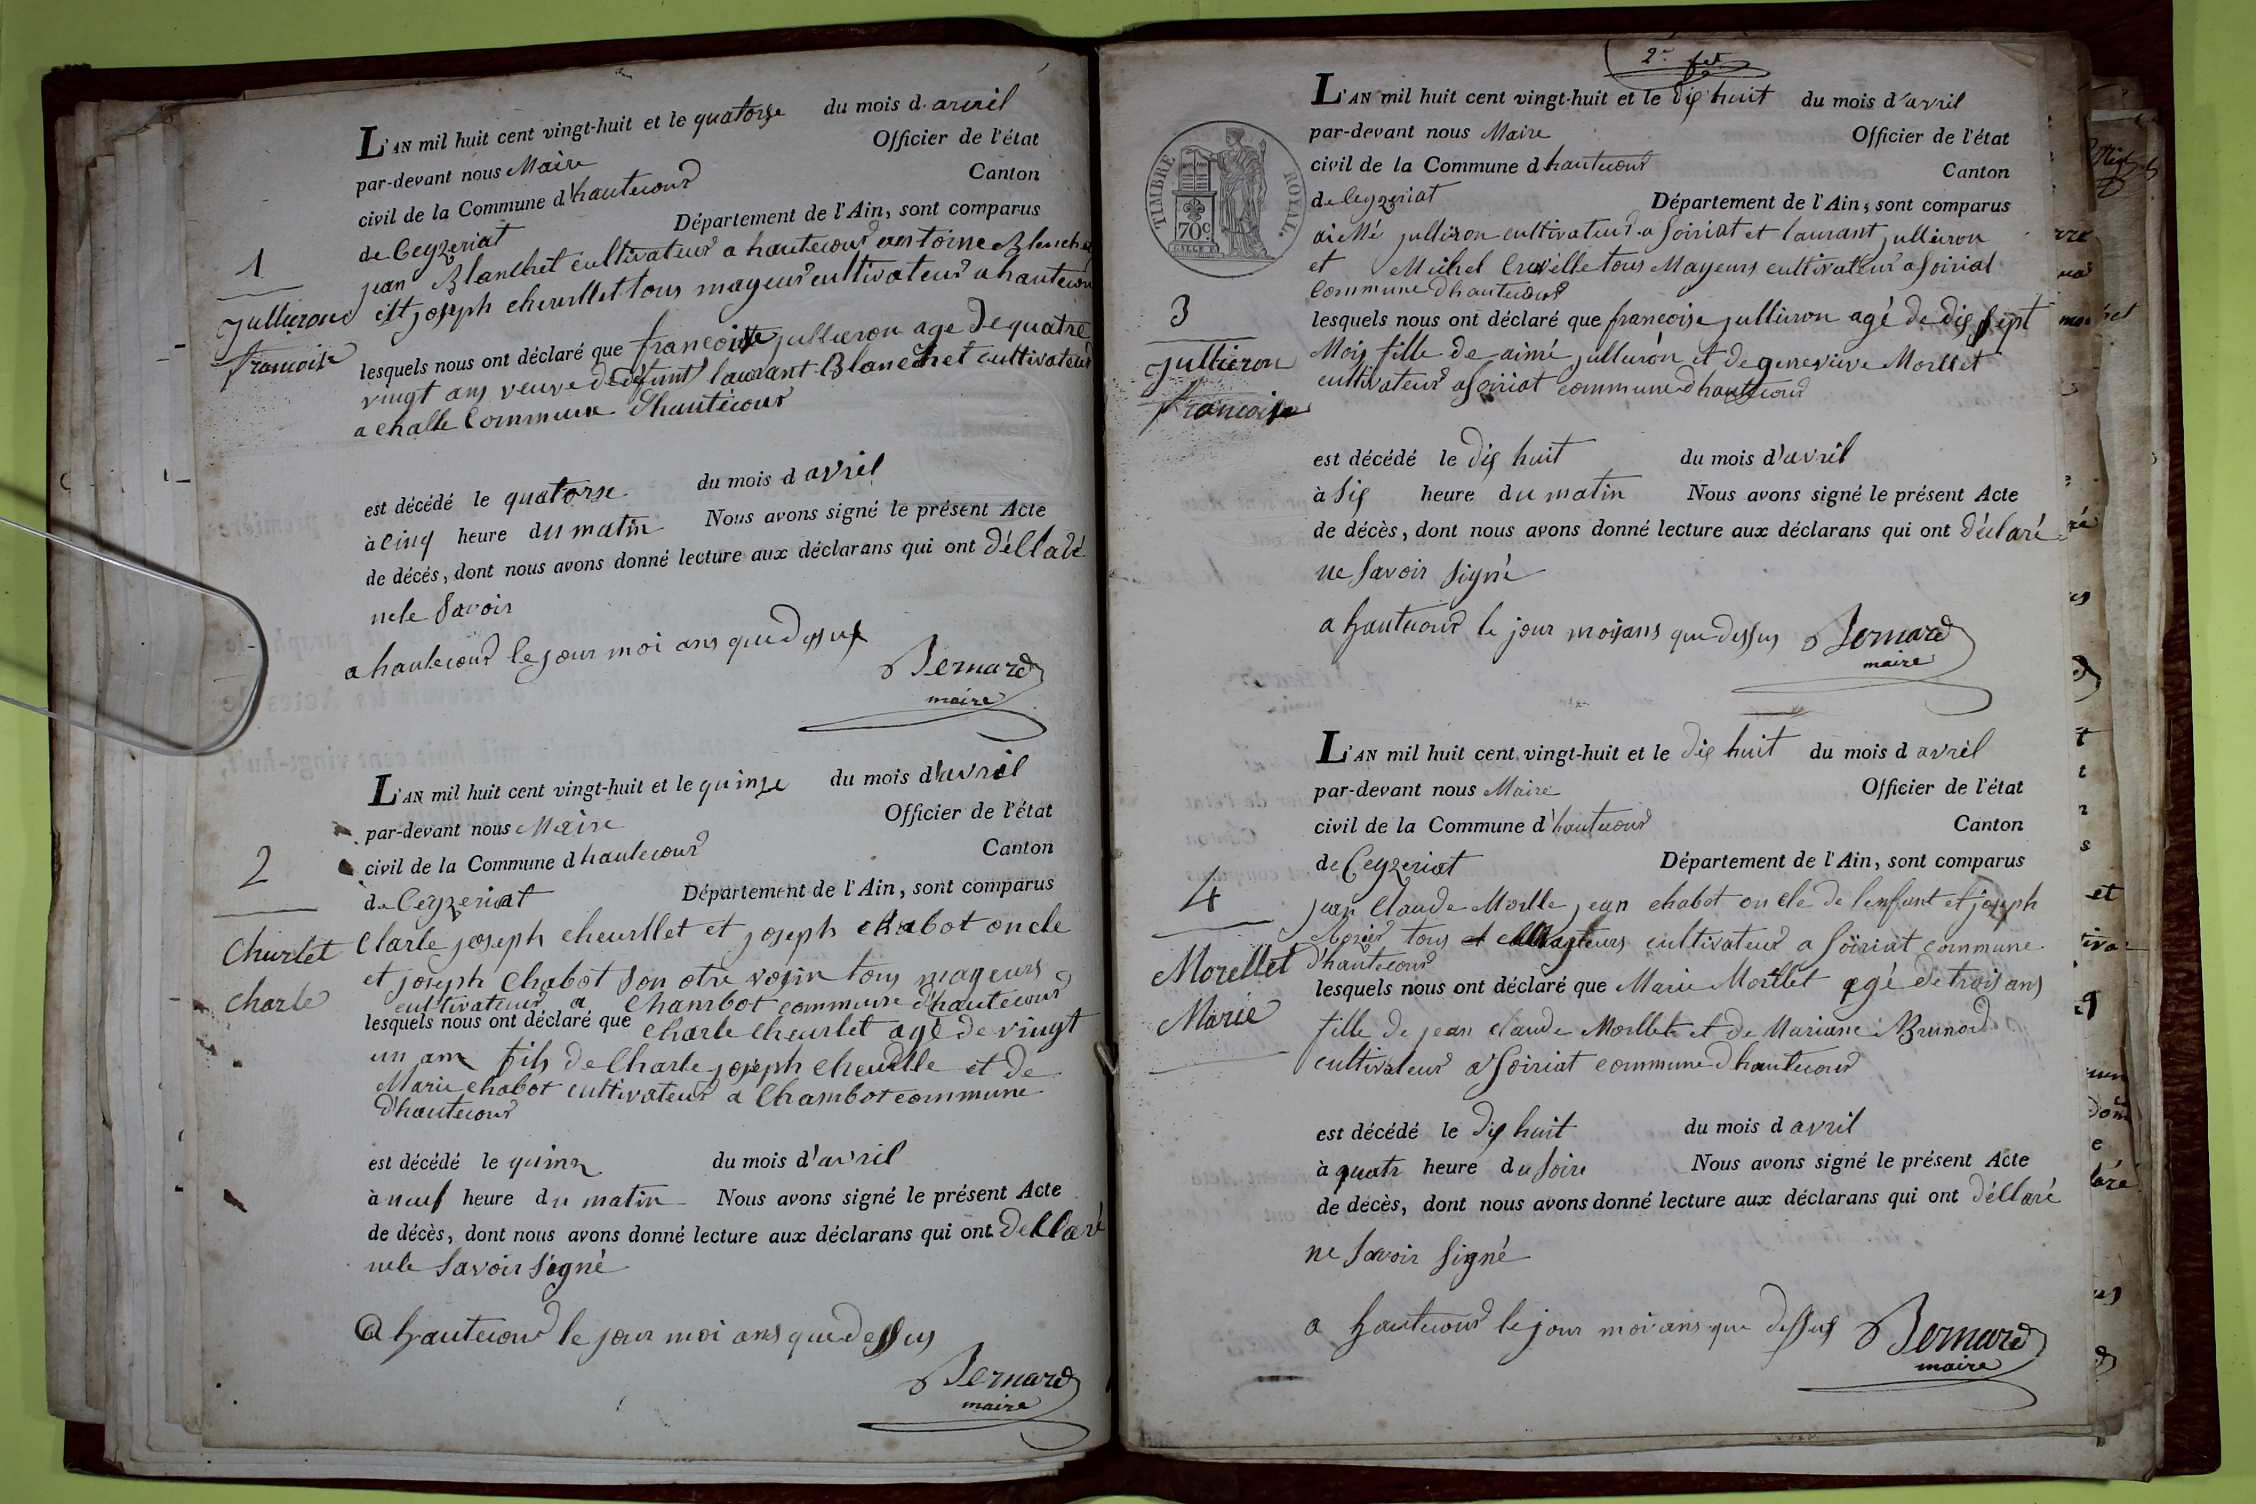 L'AN mil huit cent vingt-huit et le quatorze du mois d avril
par-devant nous Maire Officier de l'état
civil de la Commune d'hautecour Canton
de Ceyzeriat Département de l'Ain, sont comparus
jean Blanchet cultivateur a hautecour antoine Blanchet
et joseph cheurllet tous mayeur cultivateur a hautecour
lesquels nous ont déclaré que francoise jullieron age de quatre
vingt ans veuve de défunt laurant Blanchet cultivateur
a challe Commune d'hautecour
est décédé le quatorze du mois d avril
à cinq heure du matin Nous avons signé le présent Acte
de décès, dont nous avons donné lecture aux déclarans qui ont déllaré
nele Savoir
a hautecour le jour moi ans que dessus
Bernard
maire
1
jullieron
francoise
L'AN mil huit cent vingt-huit et le quinze du mois d'avril
par-devant nous Maire Officier de l'état
civil de la Commune d hautecour Canton
de Ceyzeriat Département de l'Ain, sont comparus
Clarle joseph cheurllet et joseph chabot oncle
et joseph Chabot son otre voisin tous mayeurs
cultivateur a Chambot commune d'hautecour
lesquels nous ont déclaré que Charle Cheurlet agé de vingt
un am fils de Charle joseph Cheurlle et de
Marie chabot cultivateur a Chambot commune
d'hautecour
est décédé le quinz du mois d'avril
à neuf heure du matin Nous avons signé le présent Acte
de décès, dont nous avons donné lecture aux déclarans qui ont dellaré
nele Savoir signé
a hautecour le jour moi ans que dessus
Bernard
maire
2
Churlet
charle
2e fet
L'AN mil huit cent vingt-huit et le dix huit du mois d'avril
par-devant nous Maire Officier de l'état
civil de la Commune d hautecour Canton
de Ceyzeriat Département de l'Ain, sont comparus
jullieron cultivateur a Soiriat et laurant jullieron
et Michel tous Mayeurs cultivateur a Soiriat
Commune d'hautecour
lesquels nous ont déclaré que francoise jullieron agé de dix sept
Mois fille de aimé jullieron et de genevieve Morllet
cultivateur a Soiriat commune d'hautecour
est décédé le dix huit du mois d'avril
à Six heure du matin Nous avons signé le présent Acte
de décès, dont nous avons donné lecture aux déclarans qui ont déclaré
ne Savoir Signé
a hautecour le jour mois ans que dessus
Bernard
maire
TIMBRE ROYAL.
70c
3
jullieron
francoise
L'AN mil huit cent vingt-huit et le dix huit du mois d avril
par-devant nous Maire Officier de l'état
civil de la Commune d'hautecour Canton
de Ceyzeriat Département de l'Ain, sont comparus
jean Claude Morlle jean chabot oncle de lenfant et joseph
tous cultivateur a Soiriat commune
d'hautecour
lesquels nous ont déclaré que Marie Morllet agé de trois ans
fille de jean claude Morllet et de Mariane Brunod
cultivateur a Soiriat commune d'hautecour
est décédé le dix huit du mois d avril
à quatr heure du Soire Nous avons signé le présent Acte
de décès, dont nous avons donné lecture aux déclarans qui ont déllaré
ne Savoir Signé
a hautecour le jour moi ans que dessus
Bernard
maire
4
Morellet
Marie